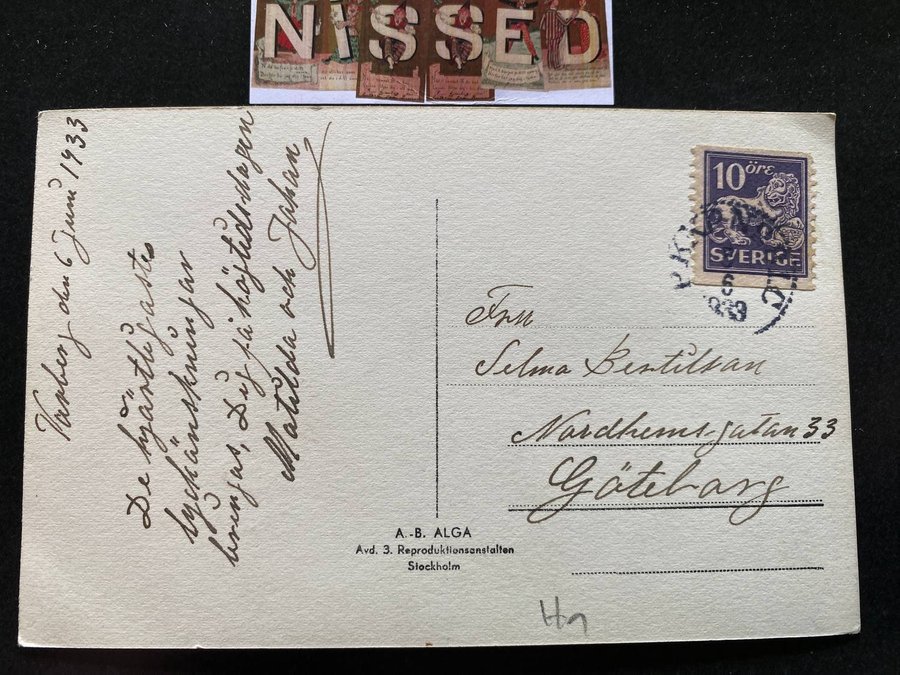 NISSED
Varberg den 6 Juni 1933
De hjärtligaste
lyckönskningar
bringas, Dig på högtidsdagen
Matilda och Johan
10 öre
SVERIGE
6
1933
Fru
Selma Bertilson
Nordhemsgatan 33
Göteborg
A.-B. ALGA
Avd. 3. Reproduktionsanstalten
Stockholm